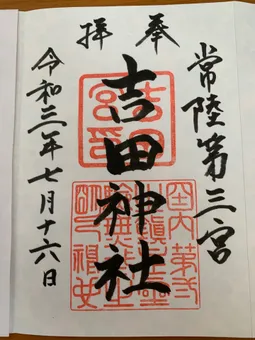 奉拝
常陸第三宮
吉田神社
令和三年七月十六日